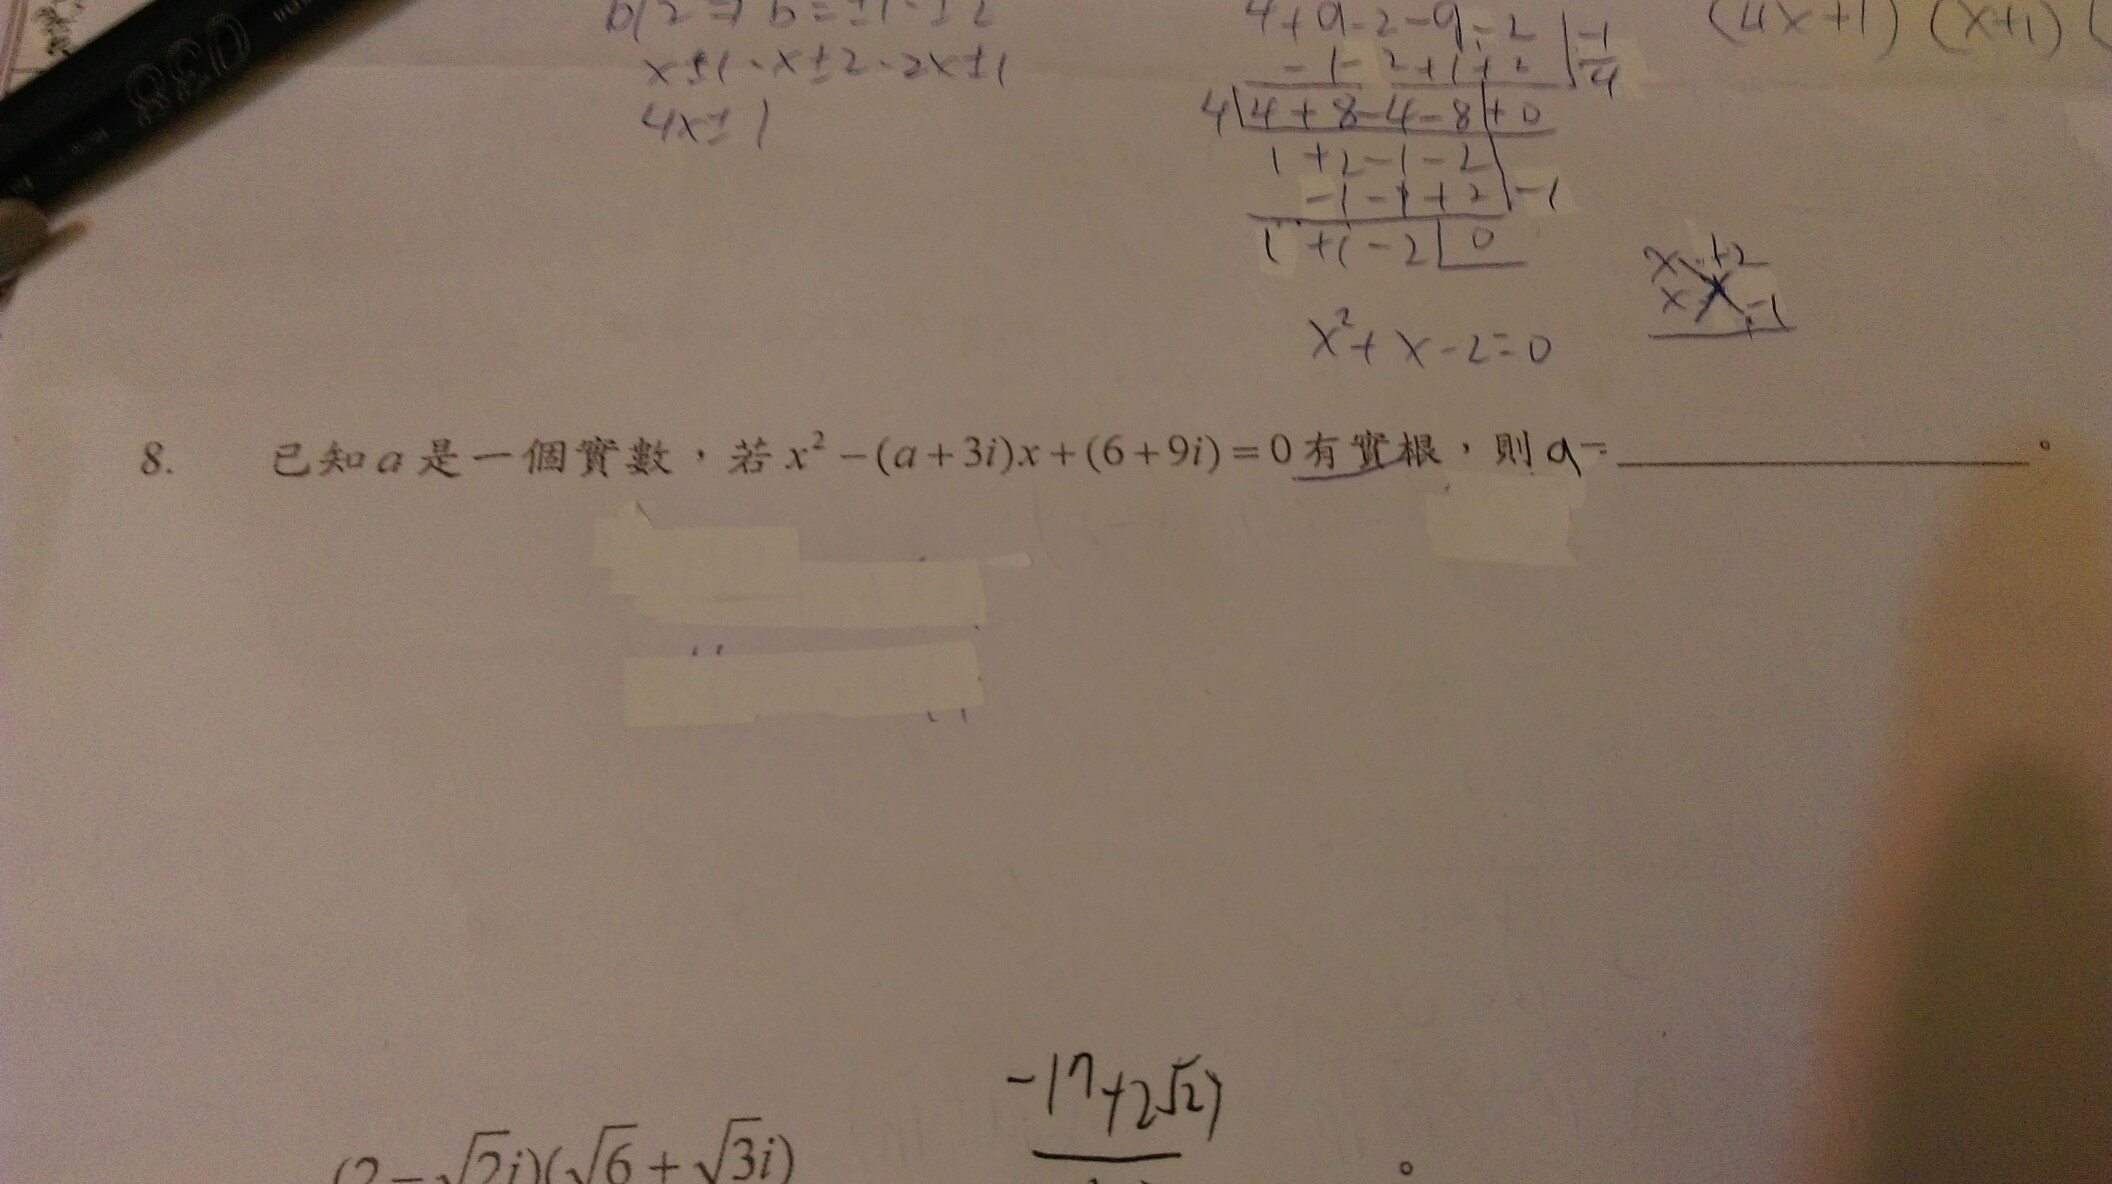 x±1、x±2、2x±1
4x±1
4+9-2-9-2
-1-2+1+2 | -1/4
4 | 4+8-4-8+0
1+2-1-2
-1-1+2 | -1
1+1-2 | 0
x²+x-2=0
x +2
x -1
(4x+1)(x+1)
8. 已知a是一個實數，若x²-(a+3i)x+(6+9i)=0有實根，則a=____________。
-17+2√2i
(2-√2i)(√6+√3i) 。